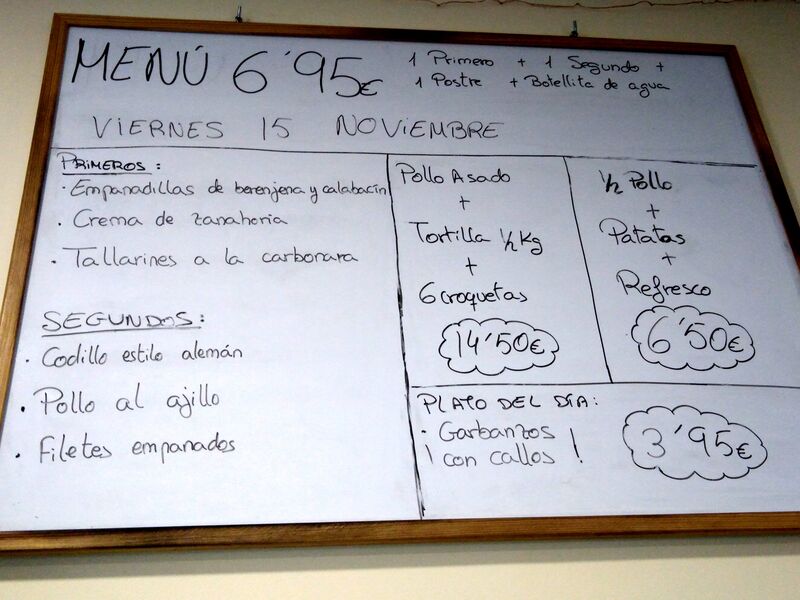 MENÚ 6'95€
1 Primero + 1 Segundo +
1 Postre + Botellita de agua
VIERNES 15 NOVIEMBRE
PRIMEROS:
· Empanadillas de berenjena y calabacín
· Crema de zanahoria
· Tallarines a la carbonara
SEGUNDOS:
· Codillo estilo alemán
· Pollo al ajillo
· Filetes empanados
Pollo Asado
+
Tortilla 1/2 Kg
+
6 croquetas
14'50€
1/2 Pollo
+
Patatas
+
Refresco
6'50€
PLATO DEL DÍA:
· Garbanzos
con callos !
3'95€